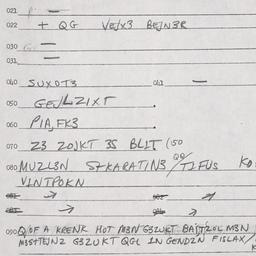 021 —
022 + QG VEJX3 BEJN3R
030 —
031
040 SUXDT3 041 —
050 GEVLZIXT .
060 PIA,FK3 .
070 Z3 ZOJKT 3S BLIT (50
080 MUZL3N S+KARATIN3 /TIFUS KO
VINTPOKN
090 Q OF A KRENK HOT M3N G3ZUKT M3N
G3ZUKT QGL IN GENDZN FISLAX/